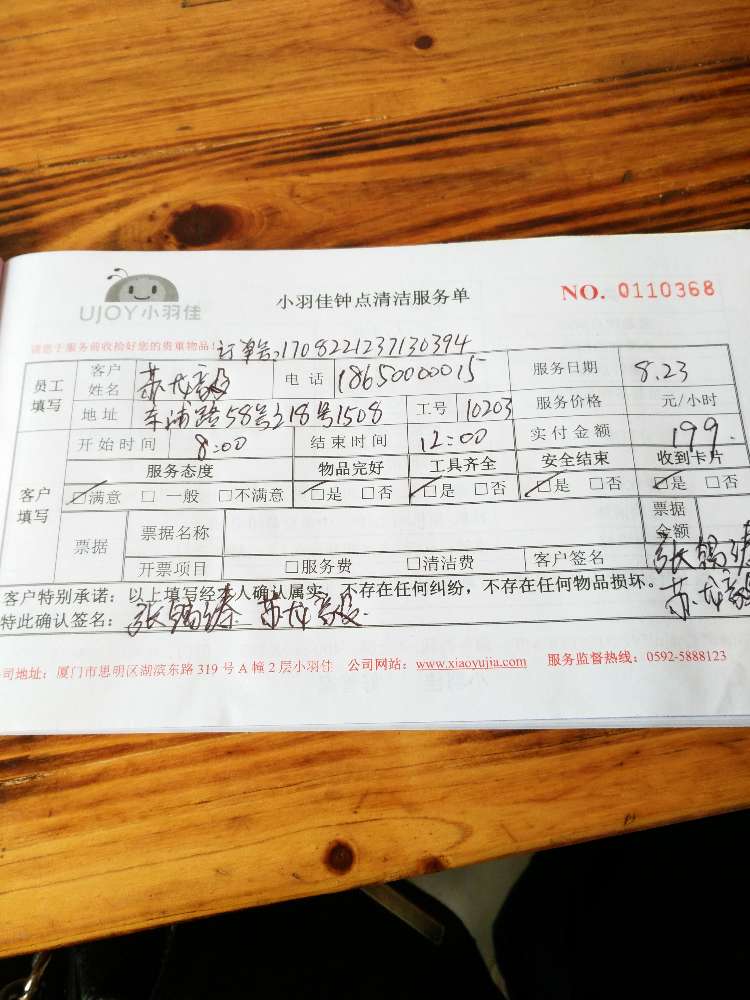 UJOY小羽佳
小羽佳钟点清洁服务单
NO. 0110368
请您于服务前收拾好您的贵重物品!
订单号:1708221237130394
员工填写 客户姓名 苏龙 电话 18650000015 服务日期 8.23
地址 东浦路58号218号1508 工号 10203 服务价格 元/小时
客户填写 开始时间 8:00 结束时间 12:00 实付金额 199.
服务态度 物品完好 工具齐全 安全结束 收到卡片
☑满意 □一般 □不满意 ☑是 □否 ☑是 □否 ☑是 □否 ☑是 □否
票据 票据名称 票据金额
开票项目 □服务费 □清洁费 客户签名 张锡
苏龙
客户特别承诺：以上填写经本人确认属实，不存在任何纠纷，不存在任何物品损坏。
特此确认签名： 张锡 苏龙
司地址：厦门市思明区湖滨东路 319 号 A 幢 2 层小羽佳 公司网站：www.xiaoyujia.com 服务监督热线：0592-5888123